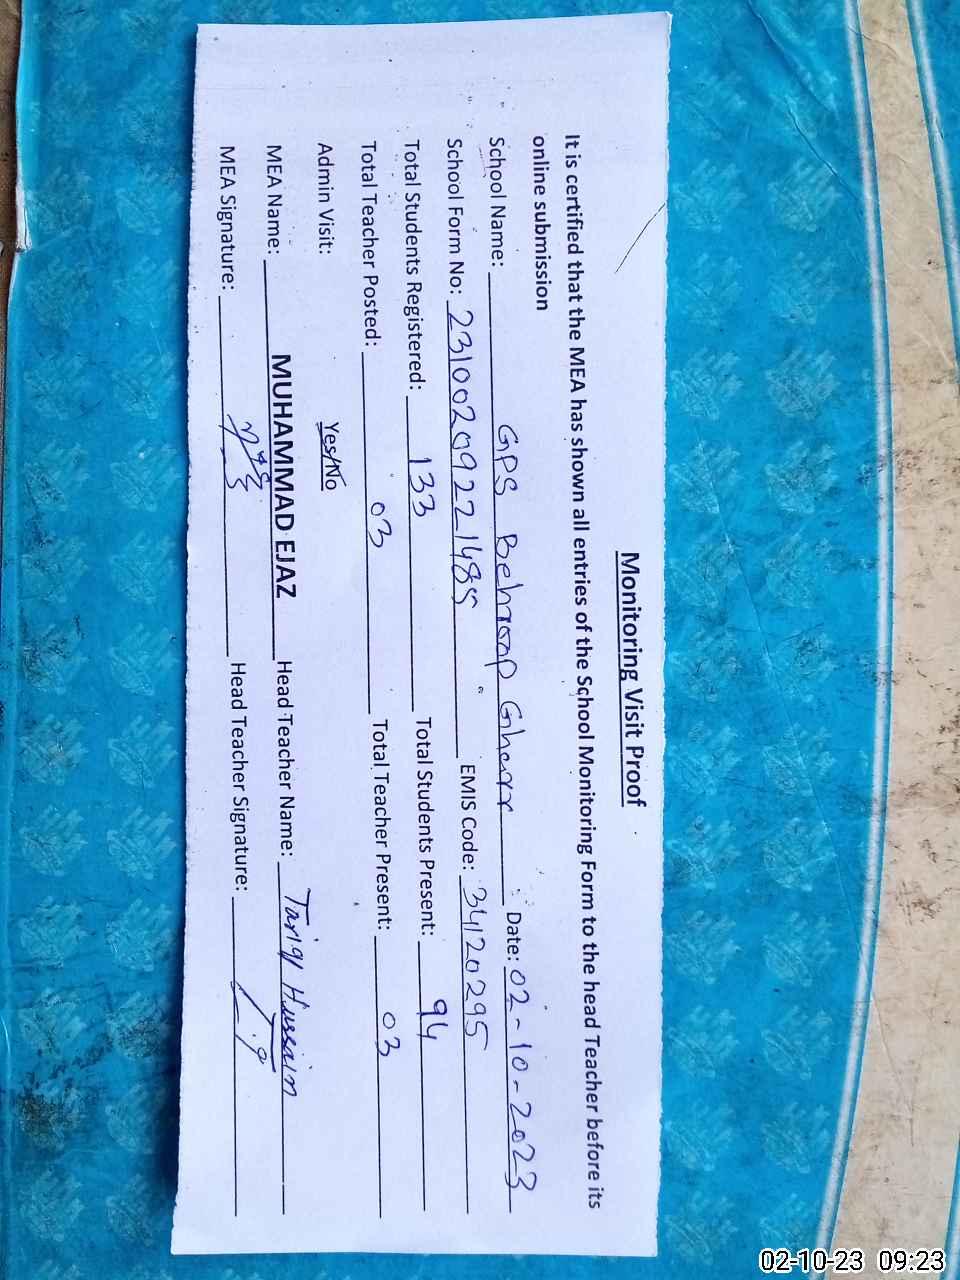 Monitoring Visit Proof
It is certified that the MEA has shown all entries of the School Monitoring Form to the head Teacher before its
online submission
School Name: GPS Behroop Gharr Date: 02-10-2023
School Form No: 23100209221485 EMIS Code: 34120295
Total Students Registered: 133 Total Students Present: 94
Total Teacher Posted: 03 Total Teacher Present: 03
Admin Visit: Yes/No
MEA Name: MUHAMMAD EJAZ Head Teacher Name: Tariq Hussain
MEA Signature: Head Teacher Signature:
02-10-23 09:23